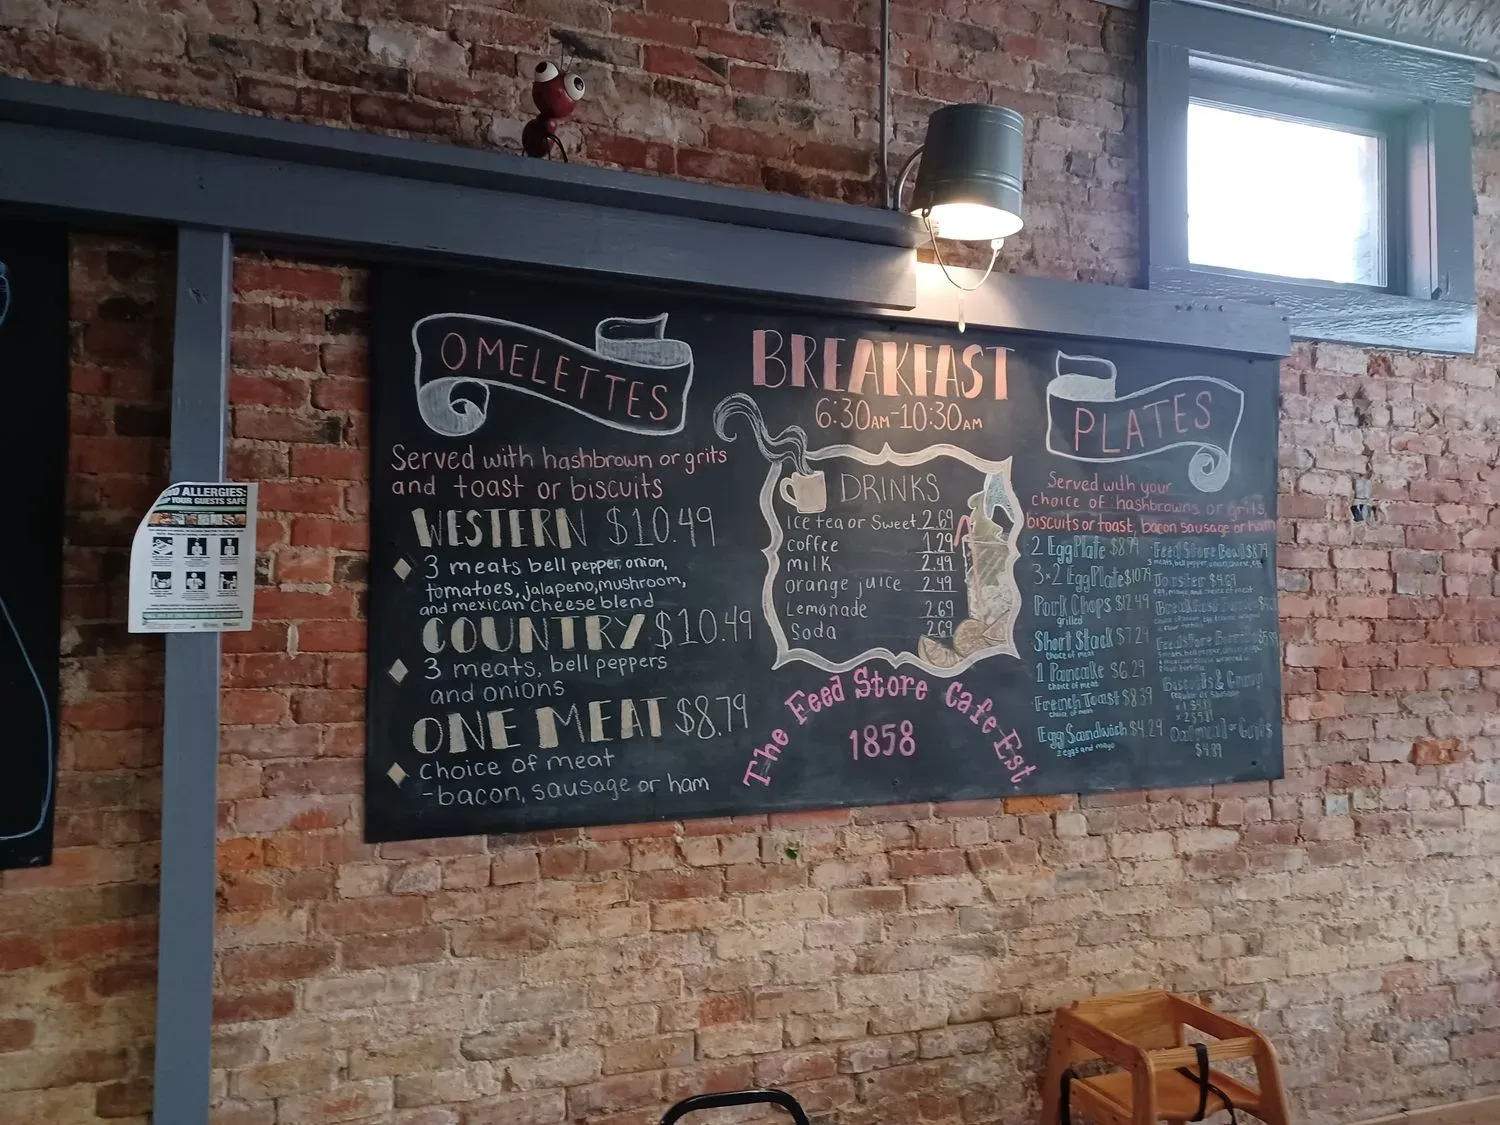 OMELETTES
Served with hashbrown or grits
and toast or biscuits
WESTERN $10.49
3 meats bell pepper, onion,
tomatoes, jalapeno, mushroom,
and mexican cheese blend
COUNTRY $10.49
3 meats, bell peppers
and onions
ONE MEAT $8.79
Choice of meat
-bacon, sausage or ham
BREAKFAST
6:30AM-10:30AM
DRINKS
Ice tea or Sweet 2.69
coffee 1.29
milk 2.49
orange juice 2.49
Lemonade 2.69
Soda 2.69
The Feed Store Cafe Est.
1858
PLATES
Served with your
choice of hashbrowns or grits,
biscuits or toast, bacon sausage or ham
2 Egg Plate $8.79
3x2 Egg Plate $10.79
Pork Chops $12.49
grilled
Short Stack $7.29
choice of meat
1 Pancake $6.29
choice of meat
French Toast $8.39
choice of meat
Egg Sandwich $4.29
2 eggs and mayo
Feed Store Bowl $8.79
3 meats, bell pepper, onion, cheese, egg
Toaster $4.69
egg, mayo and choice of meat
Breakfast
Feed Store Burrito
Biscuits & Gravy
regular or sausage
Oatmeal or Grits
$4.89
ALLERGIES:
YOUR GUESTS SAFE